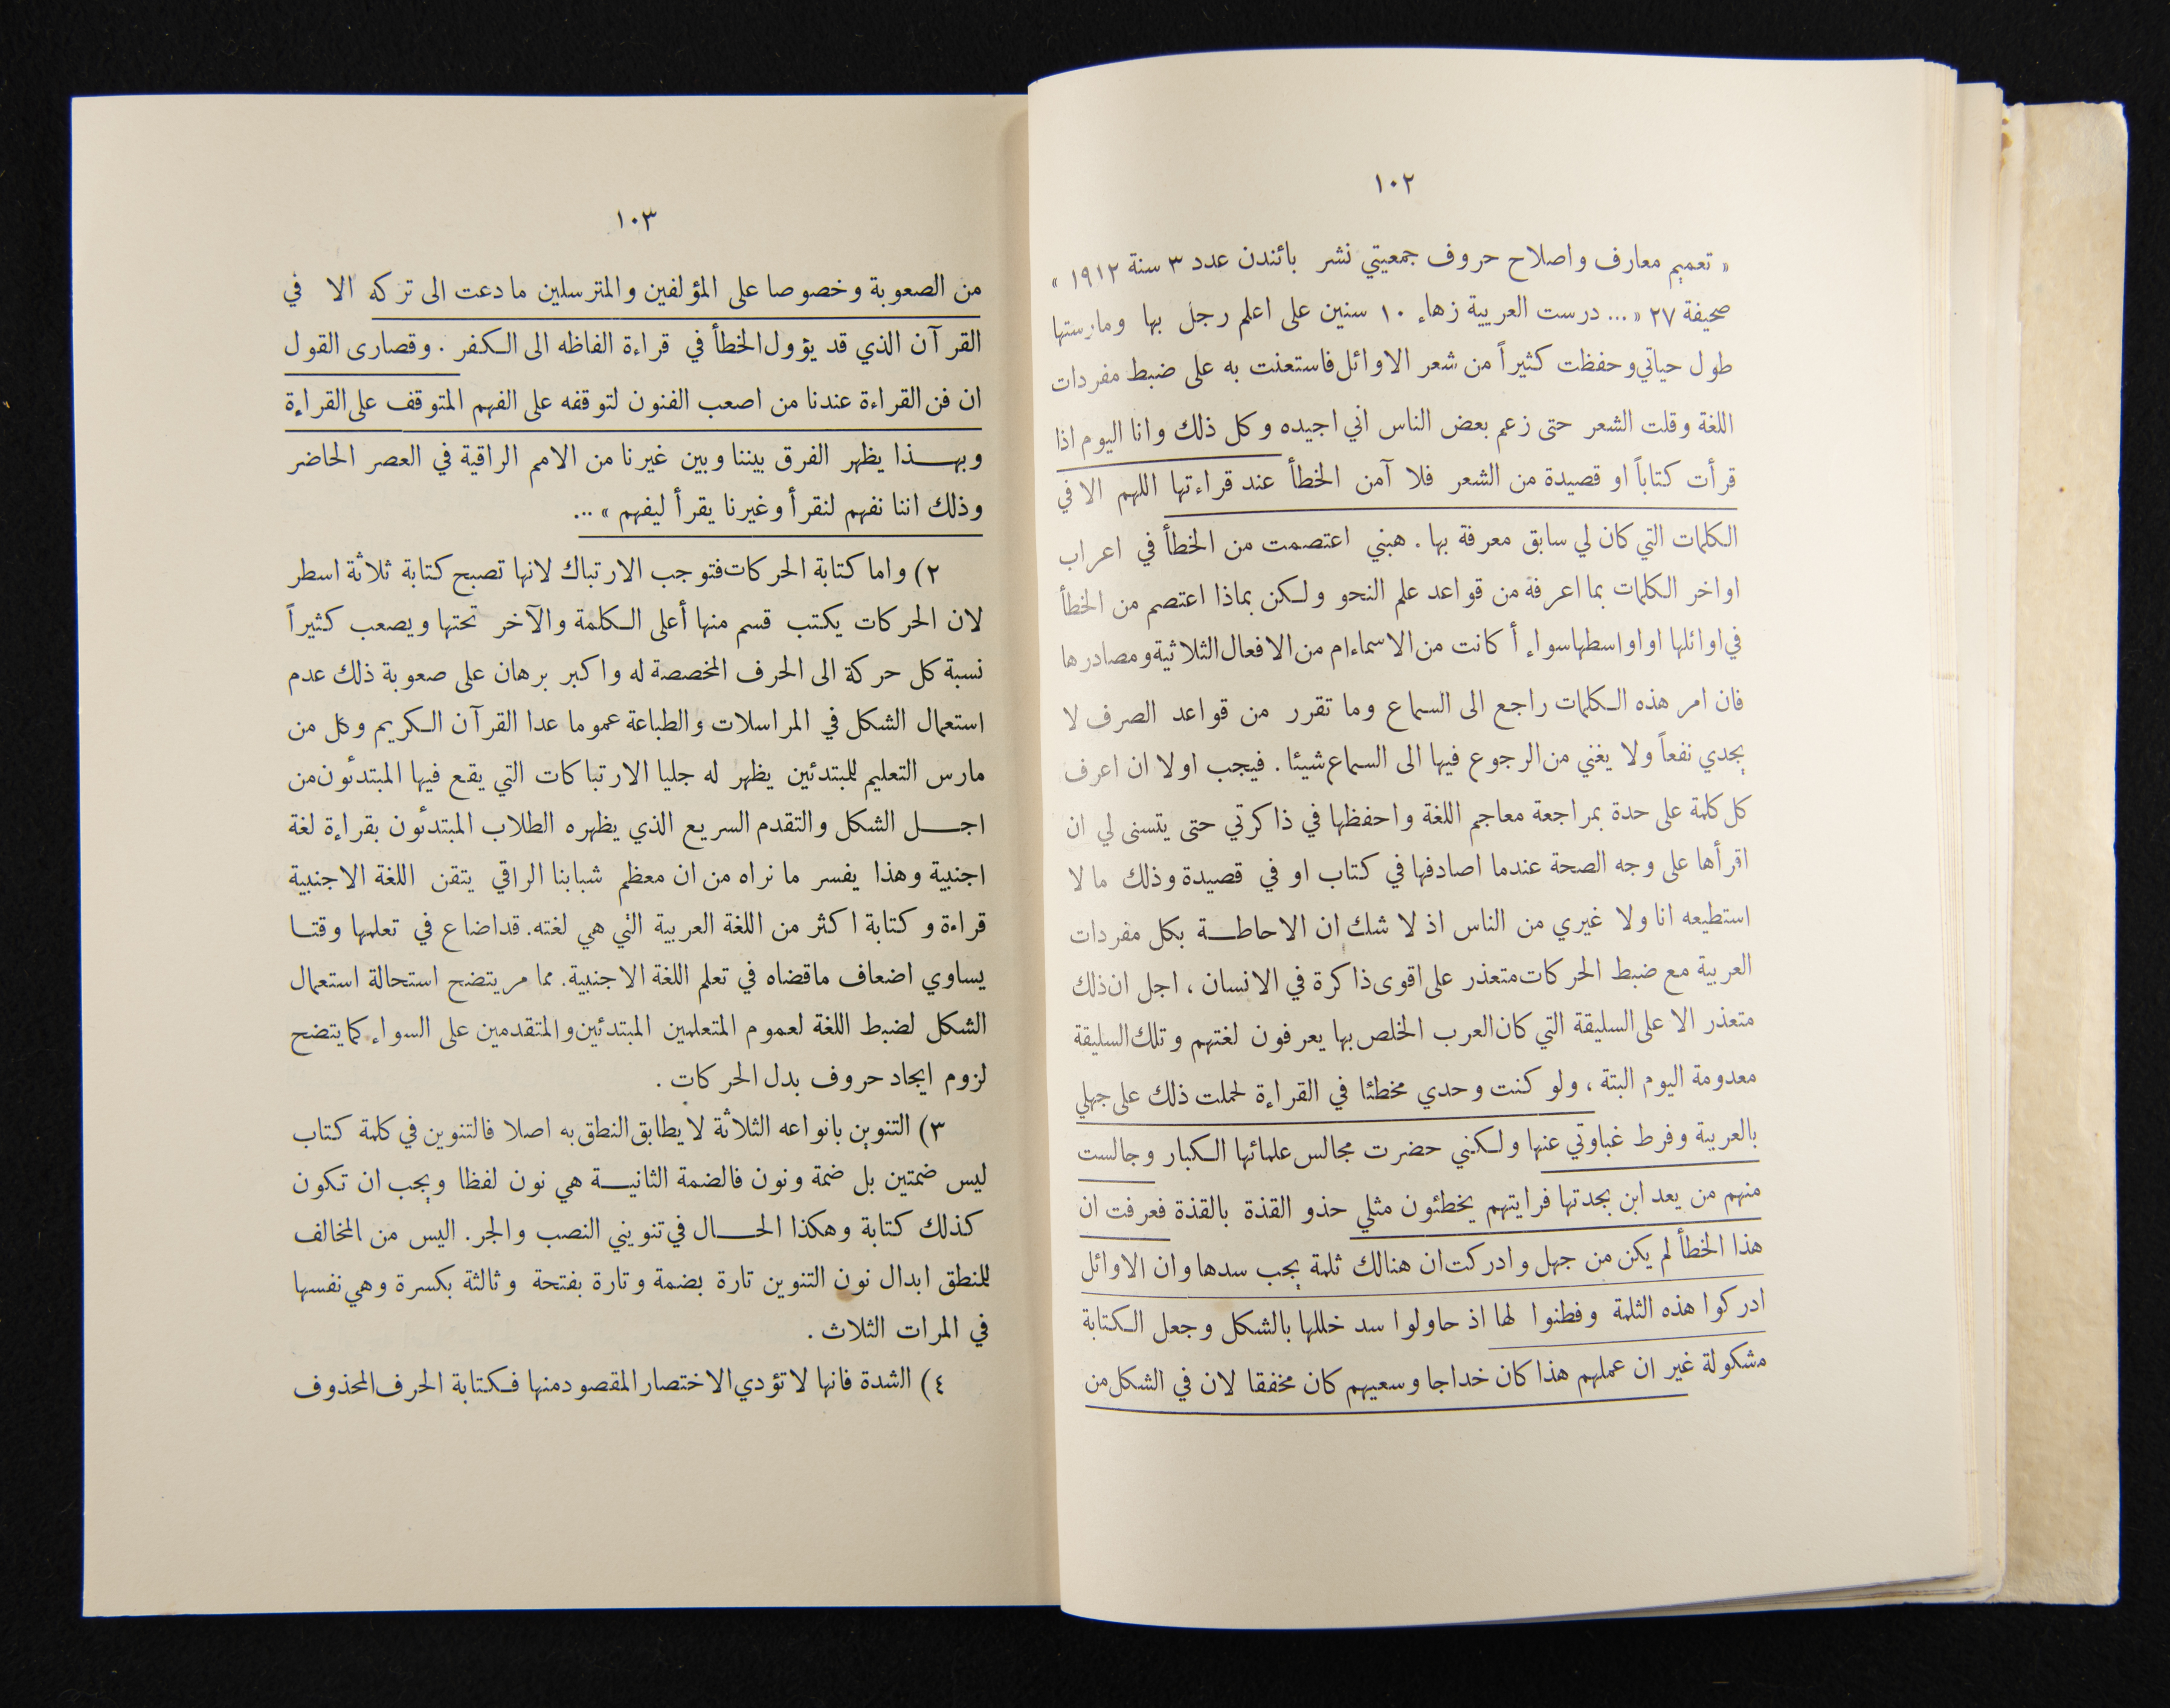 ١٠٢
« تعميم معارف واصلاح حروف جمعيتي نشر بائندن عدد ٣ سنة ١٩١٢ »
صحيفة ٢٧ « ... درست العربية زهاء ١٠ سنين على اعلم رجل بها ومارستها
طول حياتي وحفظت كثيراً من شعر الاوائل فاستعنت به على ضبط مفردات
اللغة وقلت الشعر حتى زعم بعض الناس اني اجيده وكل ذلك وانا اليوم اذا
قرأت كتاباً او قصيدة من الشعر فلا آمن الخطأ عند قراءتها اللهم الا في
الكلمات التي كان لي سابق معرفة بها . هبني اعتصمت من الخطأ في اعراب
اواخر الكلمات بما اعرفة من قواعد علم النحو ولكن بماذا اعتصم من الخطأ
في اوائلها او اواسطها سواء أ كانت من الاسماء ام من الافعال الثلاثية ومصادرها
فان امر هذه الكلمات راجع الى السماع وما تقرر من قواعد الصرف لا
يجدي نفعاً ولا يغني من الرجوع فيها الى السماع شيئا . فيجب اولا ان اعرف
كل كلمة على حدة بمراجعة معاجم اللغة واحفظها في ذاكرتي حتى يتسنى لي ان
اقرأها على وجه الصحة عندما اصادفها في كتاب او في قصيدة وذلك ما لا
استطيعه انا ولا غيري من الناس اذ لا شك ان الاحاطة بكل مفردات
العربية مع ضبط الحركات متعذر على اقوى ذاكرة في الانسان ، اجل ان ذلك
متعذر الا على السليقة التي كان العرب الخلص بها يعرفون لغتهم وتلك السليقة
معدومة اليوم البتة ، ولو كنت وحدي مخطئا في القراءة لحملت ذلك على جهلي
بالعربية وفرط غباوتي عنها ولكني حضرت مجالس علمائها الكبار وجالست
منهم من يعد ابن بجدتها فرايتهم يخطئون مثلي حذو القذة بالقذة فعرفت ان
هذا الخطأ لم يكن من جهل وادركت ان هنالك ثلمة يجب سدها وان الاوائل
ادركوا هذه الثلمة وفطنوا لها اذ حاولوا سد خللها بالشكل وجعل الكتابة
مشكولة غير ان عملهم هذا كان خداجا وسعيهم كان مخفقا لان في الشكل من
١٠٣
من الصعوبة وخصوصا على المؤلفين والمترسلين ما دعت الى تركه الا في
القرآن الذي قد يؤول الخطأ في قراءة الفاظه الى الكفر . وقصارى القول
ان فن القراءة عندنا من اصعب الفنون لتوقفه على الفهم المتوقف على القراءة
وبهذا يظهر الفرق بيننا وبين غيرنا من الامم الراقية في العصر الحاضر
وذلك اننا نفهم لنقرأ وغيرنا يقرأ ليفهم » ...
٢) واما كتابة الحركات فتوجب الارتباك لانها تصبح كتابة ثلاثة اسطر
لان الحركات يكتب قسم منها أعلى الكلمة والآخر تحتها ويصعب كثيراً
نسبة كل حركة الى الحرف المخصصة له واكبر برهان على صعوبة ذلك عدم
استعمال الشكل في المراسلات والطباعة عموما عدا القرآن الكريم وكل من
مارس التعليم للمبتدئين يظهر له جليا الارتباكات التي يقع فيها المبتدئون من
اجل الشكل والتقدم السريع الذي يظهره الطلاب المبتدئون بقراءة لغة
اجنبية وهذا يفسر ما نراه من ان معظم شبابنا الراقي يتقن اللغة الاجنبية
قراءة وكتابة اكثر من اللغة العربية التي هي لغته. قد اضاع في تعلمها وقتا
يساوي اضعاف ماقضاه في تعلم اللغة الاجنبية. مما مر يتضح استحالة استعمال
الشكل لضبط اللغة لعموم المتعلمين المبتدئين والمتقدمين على السواء كما يتضح
لزوم ايجاد حروف بدل الحركات .
٣) التنوين بانواعه الثلاثة لا يطابق النطق به اصلا فالتنوين في كلمة كتاب
ليس ضمتين بل ضمة ونون فالضمة الثانية هي نون لفظا ويجب ان تكون
كذلك كتابة وهكذا الحال في تنويني النصب والجر. اليس من المخالف
للمنطق ابدال نون التنوين تارة بضمة وتارة بفتحة وثالثة بكسرة وهي نفسها
في المرات الثلاث .
٤) الشدة فانها لا تؤدي الاختصار المقصود منها فكتابة الحرف المحذوف